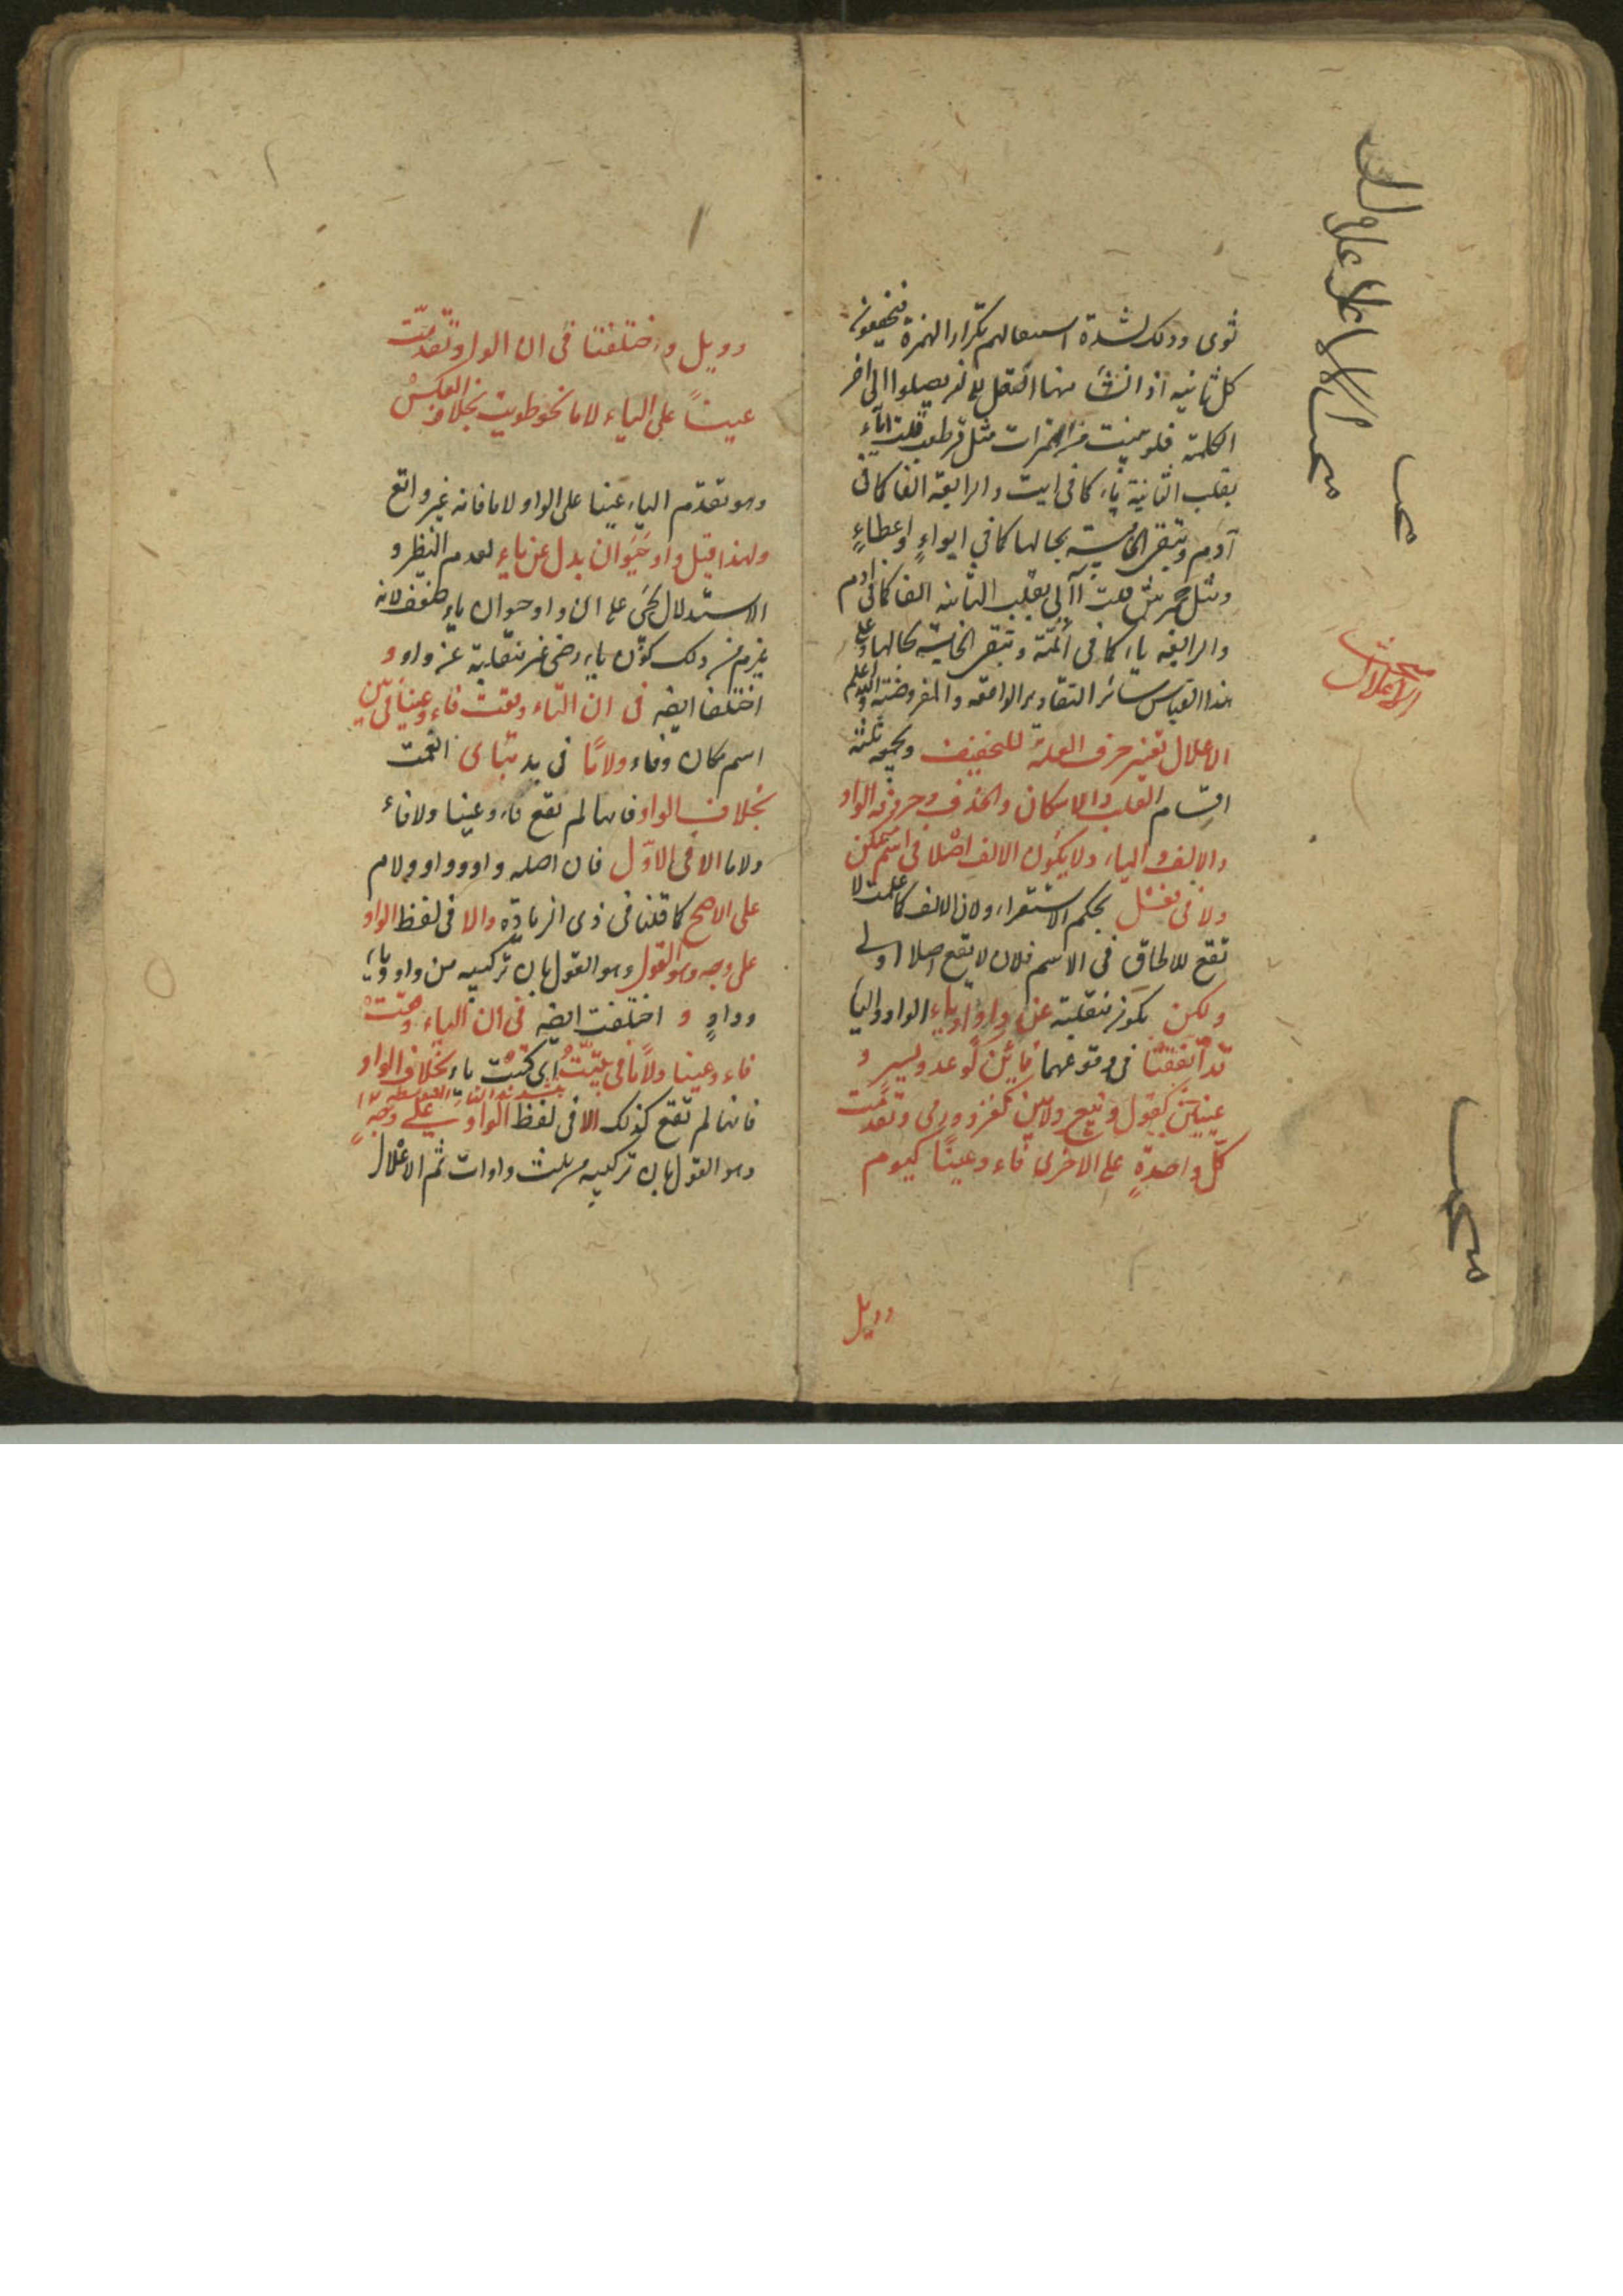 ثوى وذلك لشدة استعمالهم تكرار الهمزة فيخففون
كل ثانية اذ الثقل الى ان يصلوا الى آخر
الكلمة فلو بنيت من الهمزات مثل قرطعب قلت
بقلب الثانية ياء كما فى ايت والرابعة الفا كما فى
آدم وتبقى الخامسة بحالها كما فى ايواء واعطاء
ومثل جحمرش قلت بقلب الثانية الفا كما فى آدم
والرابعة ياء كما فى ائمة وتبقى الخامسة بحالها وعلى
هذا القياس سائر التقادير الواقعة والمفروضة والله اعلم
الاعلال تغيير حرف العلة للتخفيف ويجمعه ثلثة
اقسام القلب والاسكان والحذف وحروفه الواو
والالف والياء ولا يكون الالف اصلا فى اسم متمكن
ولا فى فعل بحكم الاستقراء ولان الالف كما علمت لا
تقع للالحاق فى الاسم فلان لا يقع اصلا اولى
ولكن يكون منقلبة عن واو او ياء الواو والياء
قد اتفقتا فى وقوعهما فائين كوعد ويسر و
عينين كقول وبيع ولامين كغزو ورمى وتقدمت
كل واحدة على الاخرى فاء وعينا كيوم
وويل
مبحث
الاعلال
وويل واختلفتا فى ان الواو تقدمت
عينا على الياء لاما نحو طويت بخلاف العكس
وهو تقدم الياء عينا على الواو لاما فانه غير واقع
ولهذا قيل واو حيوان بدل عن ياء لعدم النظير و
الاستدلال بحى على ان واو حيوان ياء ضعيف لانه
يلزم من ذلك كون ياء رضى غير منقلبة عن واو و
اختلفا ايضا فى ان الياء وقعت فاء وعينا فى يين
اسم مكان وفاء ولاما فى يديت اى انعمت
بخلاف الواو فانها لم تقع فاء وعينا ولا فاء
ولاما الا فى الاول فان اصله واو وواو ولام
على الاصح كما قلنا فى ذى الزيادة والا فى لفظ الواو
على وجه وهو القول وهو القول بان تركيبه من واو وياء
وواو و اختلفت ايضا فى ان الياء وقعت
فاء وعينا ولاما فى ييت اى كتبت ياء بخلاف الواو
فانها لم تقع كذلك الا فى لفظ الواو على وجه
وهو القول بان تركيبه من ثلث واوات ثم الاعلال